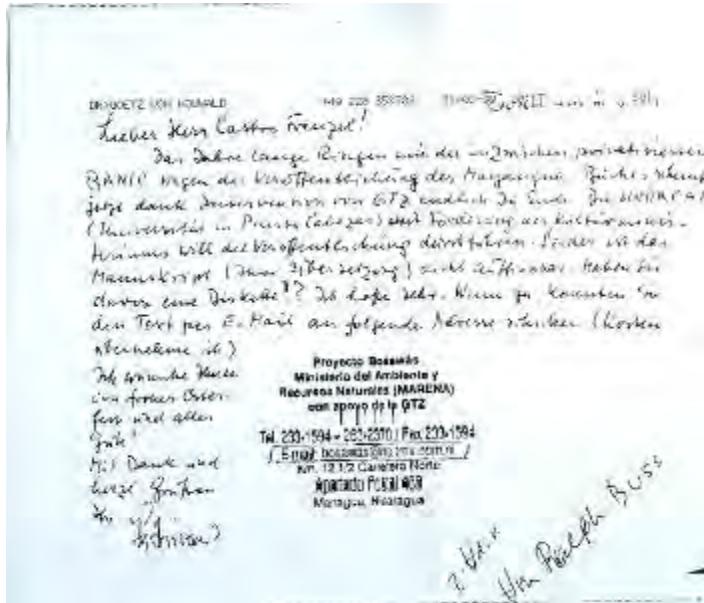 DR. GOETZ VON HOUWALD
Lieber Herr Castro Frenzel!
Das Jahre lange Ringen mit der inzwischen privatisierten
BANIC wegen der Veröffentlichung des Mayangna Buches
jetzt dank Intervention von GTZ endlich zu Ende. Die URACCAN
(Universität in Puerto Cabezas) mit Förderung des
will die Veröffentlichung durchführen. Leider ist das
Manuskript (Ihre Übersetzung) nicht Haben Sie
davon eine Diskette? Ich hoffe sehr. Wenn ja könnten Sie
den Text per E-Mail an folgende Adresse schicken (Kosten
übernehme ich)
Ich wünsche Ihnen
ein frohes Oster-
fest und alles
Gute!
Mit Dank und
herzl. Grüßen
Ihr
Proyecto Bosawás
Ministerio del Ambiente y
Recursos Naturales (MARENA)
con apoyo de la GTZ
Tel. 233-1594 - 263-2370 / Fax 233-1594
E-mail:
Km. 12 1/2 Carretera Norte
Apartado Postal
Managua, Nicaragua
Ralph Buss